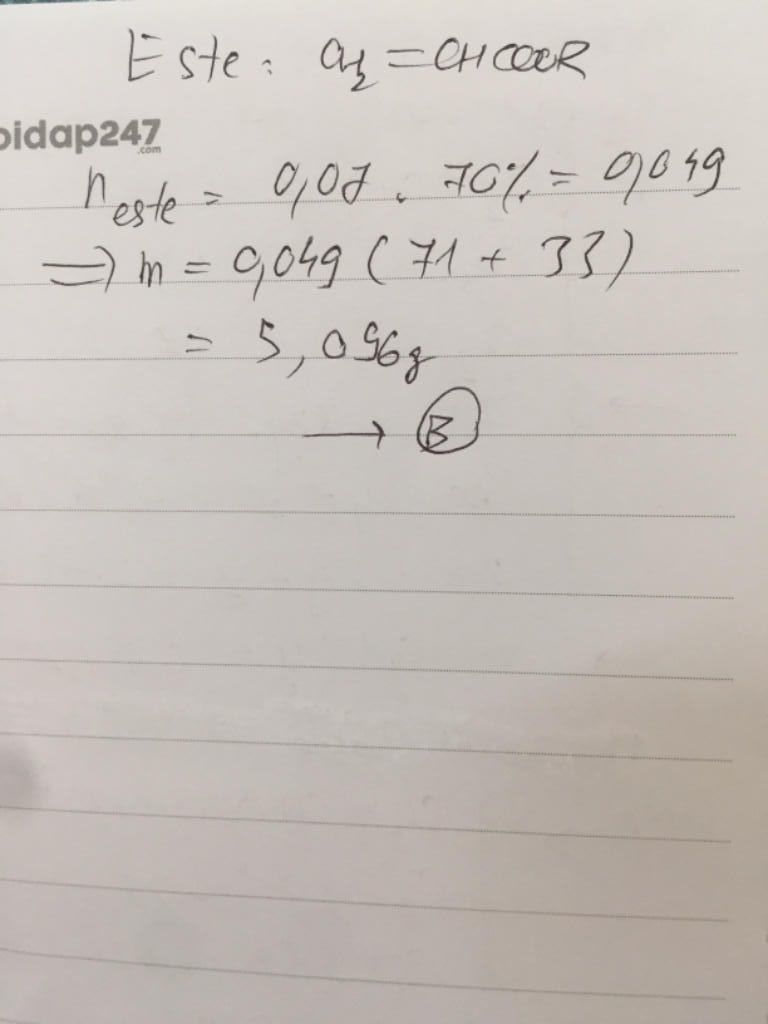 Este : CH2 = CHCOOR
oidap247
.com
n este = 0,07 . 70% = 0,049
=> m = 0,049 ( 71 + 33 )
= 5,096g
→ B